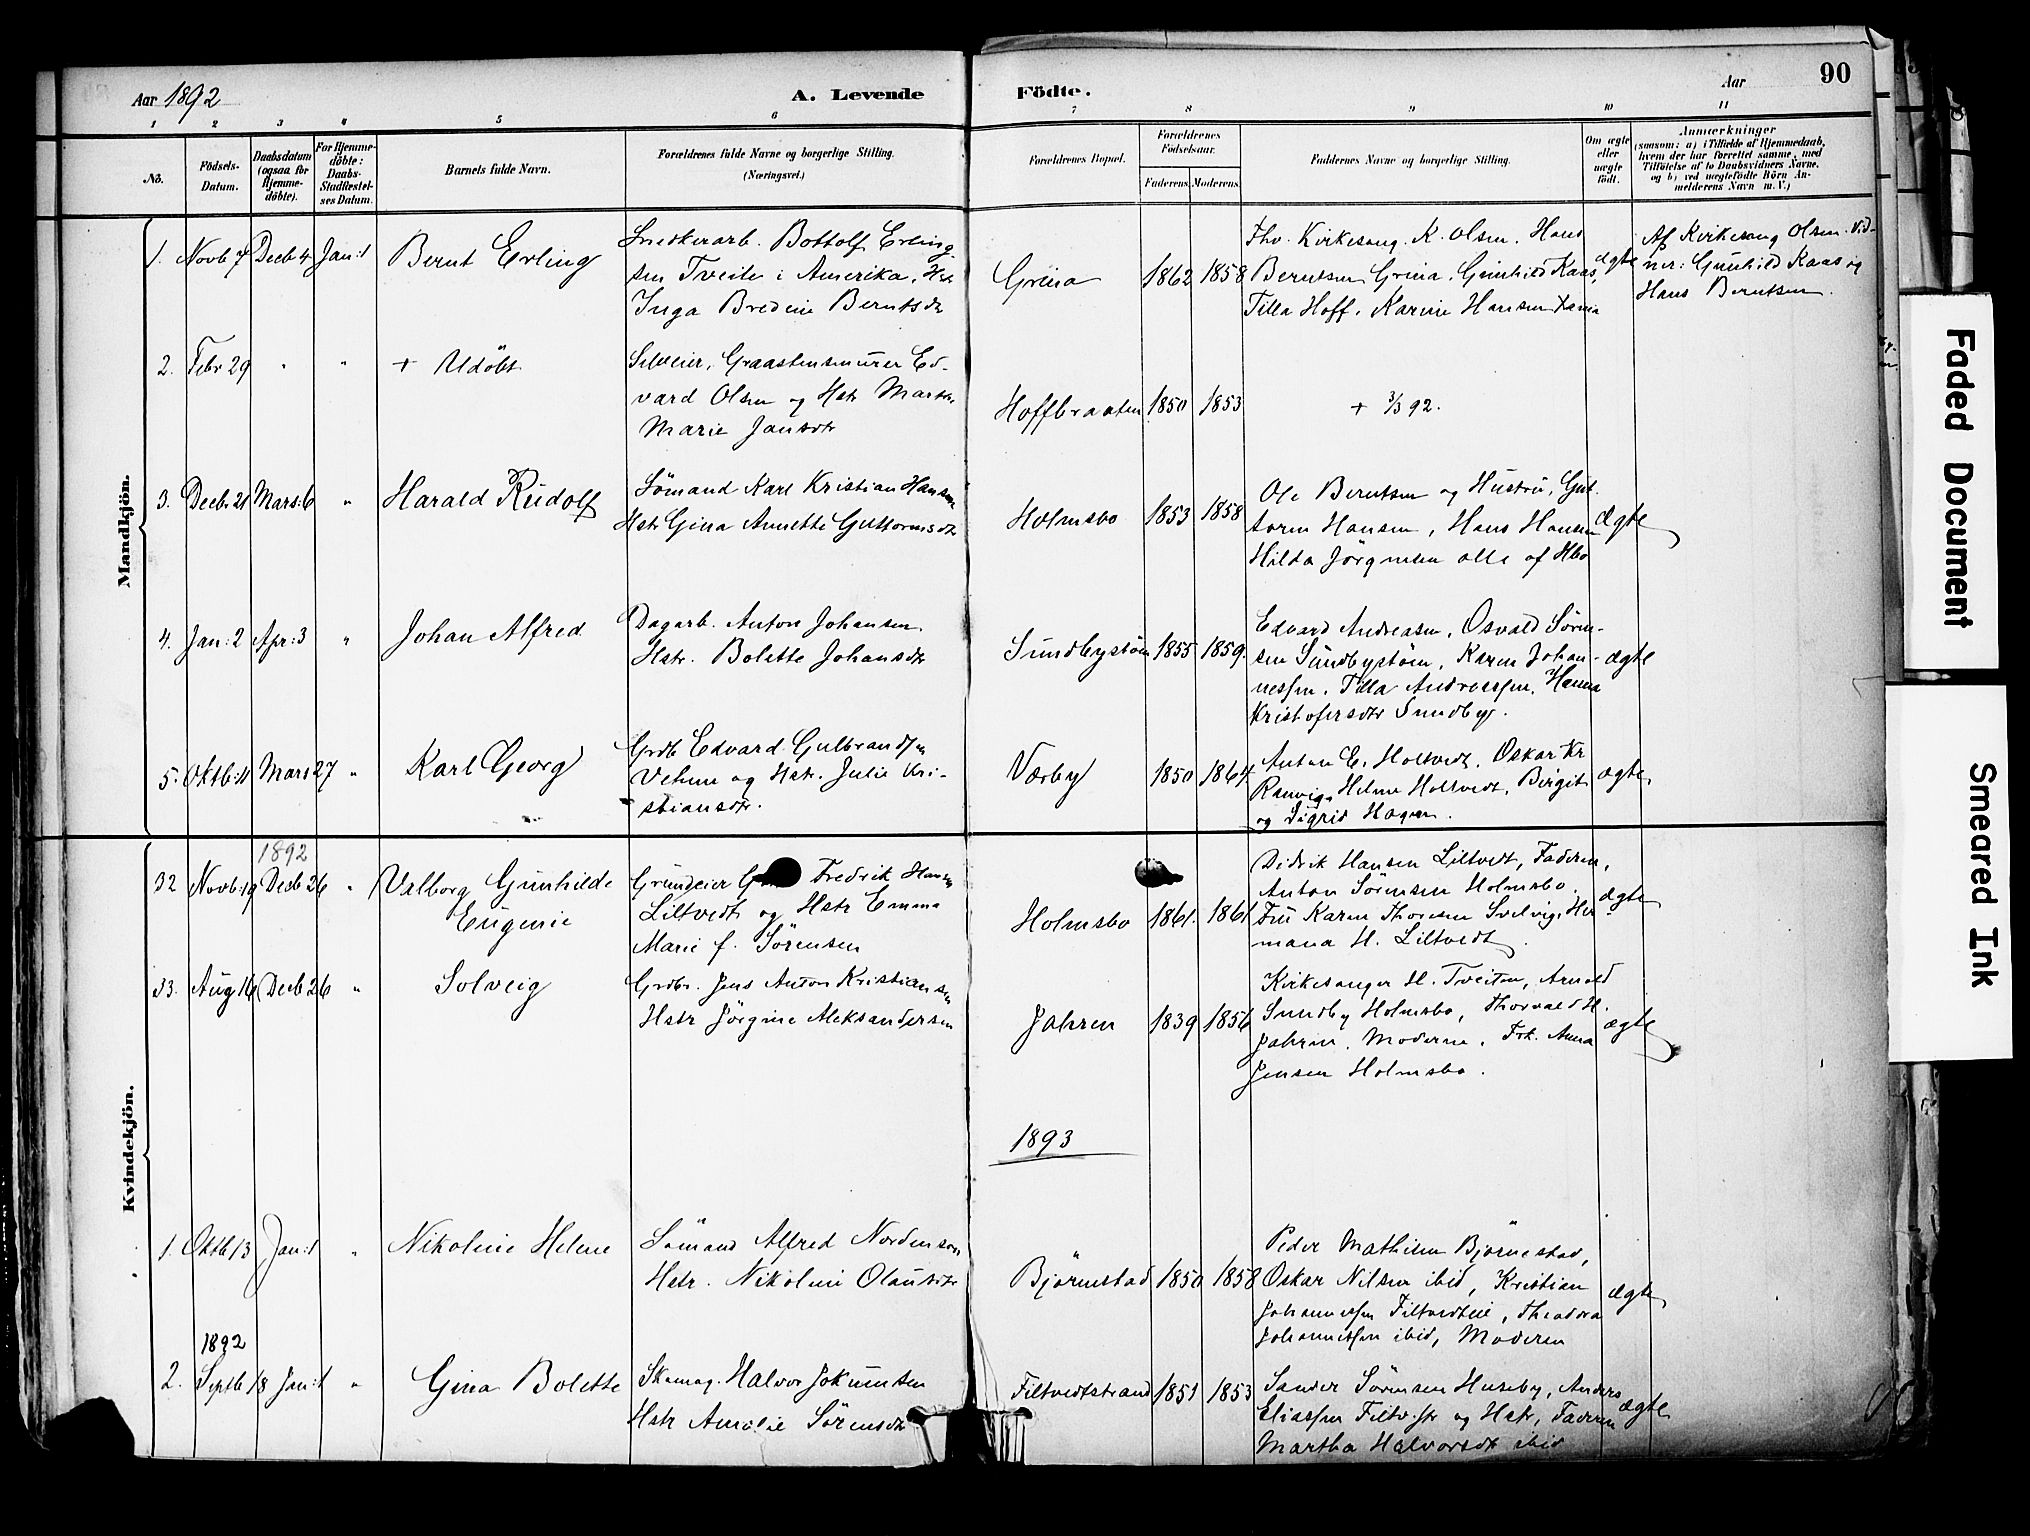 Aar 1892
A. Levende Födte.
Aar
90
1 2 3 4 5 6 7 8 9 10 11
No.
Födsels-Datum.
Daabsdatum (ogsaa for Hjemme-döbte).
For Hjemme-döbte: Daabs-Stadfæstel-ses Datum.
Barnets fulde Navn.
Forældrenes fulde Navne og borgerlige Stilling. (Næringsvei.)
Forældrenes Bopæl.
Forældrenes Födselsaar.
Faderens Moderens
Faddernes Navne og borgerlige Stilling.
Om ægte eller uægte født.
Anmærkninger
(saasom: a) i Tilfælde af Hjemmedaab, hvem der har forrettet samme, med Tilføielse af to Daabsvidners Navne. og b) ved uægtefödte Börn An-melderens Navn m. V.)
Mandkjön.
1. Novb 7 Decb 4 Jan: 1 Bernt Erling
Snedkerarb. Bottolf Erling-
sen Tveite i Amerika. Hstr
Inga Bredine Berntsdtr
Grina 1862 1858
Fhv. Kirkesang. K. Olsen. Hans
Berntsen Grina, Gunhild Kaas,
Tilla Hoff. Karine Hansen
ægte
Af Kirkesang Olsen. Vid-
ner: Gunhild Kaas og
Hans Berntsen.
2. Febr 29 " " + Udöbt
Selveier, Graastensmurer Ed-
vard Olsen og Hstr Marthe
Marie Jansdtr
Hoffbraaten 1850 1853
+ 3/3 92.
3. Decb. 21 Mars: 6 " Harald Rudolf
Sömand Karl Kristian Hansen
Hstr Gina Annette Guttormsdtr
Holmsbo 1853 1858
Ole Berntsen og Hustru, Gut-
torm Hansen, Hans Hansen
Hilda Jörgensen alle af Hbo
Ægte
4. Jan: 2 Apr: 3 " Johan Alfred
Dagarb. Anton Johansen.
Hstr. Bolette Johansdtr
Sundbystöen 1855 1859.
Edvard Andreasen, Osvald Sören-
sen Sundbystöen, Karen Johan-
nessen. Tilla Andreassen. Hanna
Kristofersdtr Sundby.
ægte
5. Oktb: 11 Mars 27 " Karl Georg
Grdb Edvard Gulbrandsen
Vetum og Hstr. Julie Kri-
stiansdtr.
Værby 1850 1864
Anton C. Holtvedt. Oskar Kr
Rænvig, Helene Holtvedt, Birgit
og Sigrid Hagen.
ægte
Kvindekjön.
1892
32 Novb: 19 Decb 26 " Valborg Gunhilde
Eugenie
Grundeier Fredrik Hansen
Liltvedt og Hstr Emma
Marie f. Sörensen
Holmsbo 1861. 1861
Didrik Hansen Liltvedt, Faderen,
Anton Sörensen Holmsbo.
Fru Karen Thoresen Svelvig, Her
mana H. Liltvedt.
ægte
33. Aug 16 Decb 26 " Solveig
Grdbr. Jens Anton Kristiansen
Hstr Jörgine Aleksandersen
Jahren 1839 1856
Kirkesanger H. Tveiten, Arnold
Sundby Holmsbo, Thorvald H.
Jahren. Moderen. Frk. Anna
Jensen Holmsbo.
ægte
1893
1. Oktb 13 Jan: 1 " Nikoline Helene
Sömand Alfred Nordenson
Hstr. Nikoline Olausdtr
Björnestad 1850 1858
Peder Mathisen Björnestad,
Oskar Nilsen ibid, Kristian
Johannessen Filtvedteie, Theodora
Johannessen ibid, Moderen
ægte
1892
2. Septb 18 Jan: 1 " Gina Bolette
Skomag. Halvor Jokumsen
Hstr Amalie Sörensdtr
Filtvedtstrand 1851 1853
Sander Sörensen Huseby, Anders
Eliassen Filtv.str og Hstr, Faderen
Martha Halvorsdt ibid
ægte
Faded Document
Smeared Ink